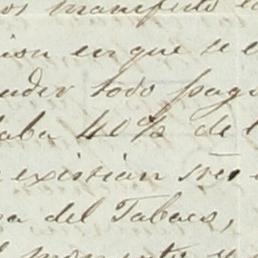 os manifesto
sion en que se e
nder todo pag
aba 40% de l
existian
a del Tabaco,